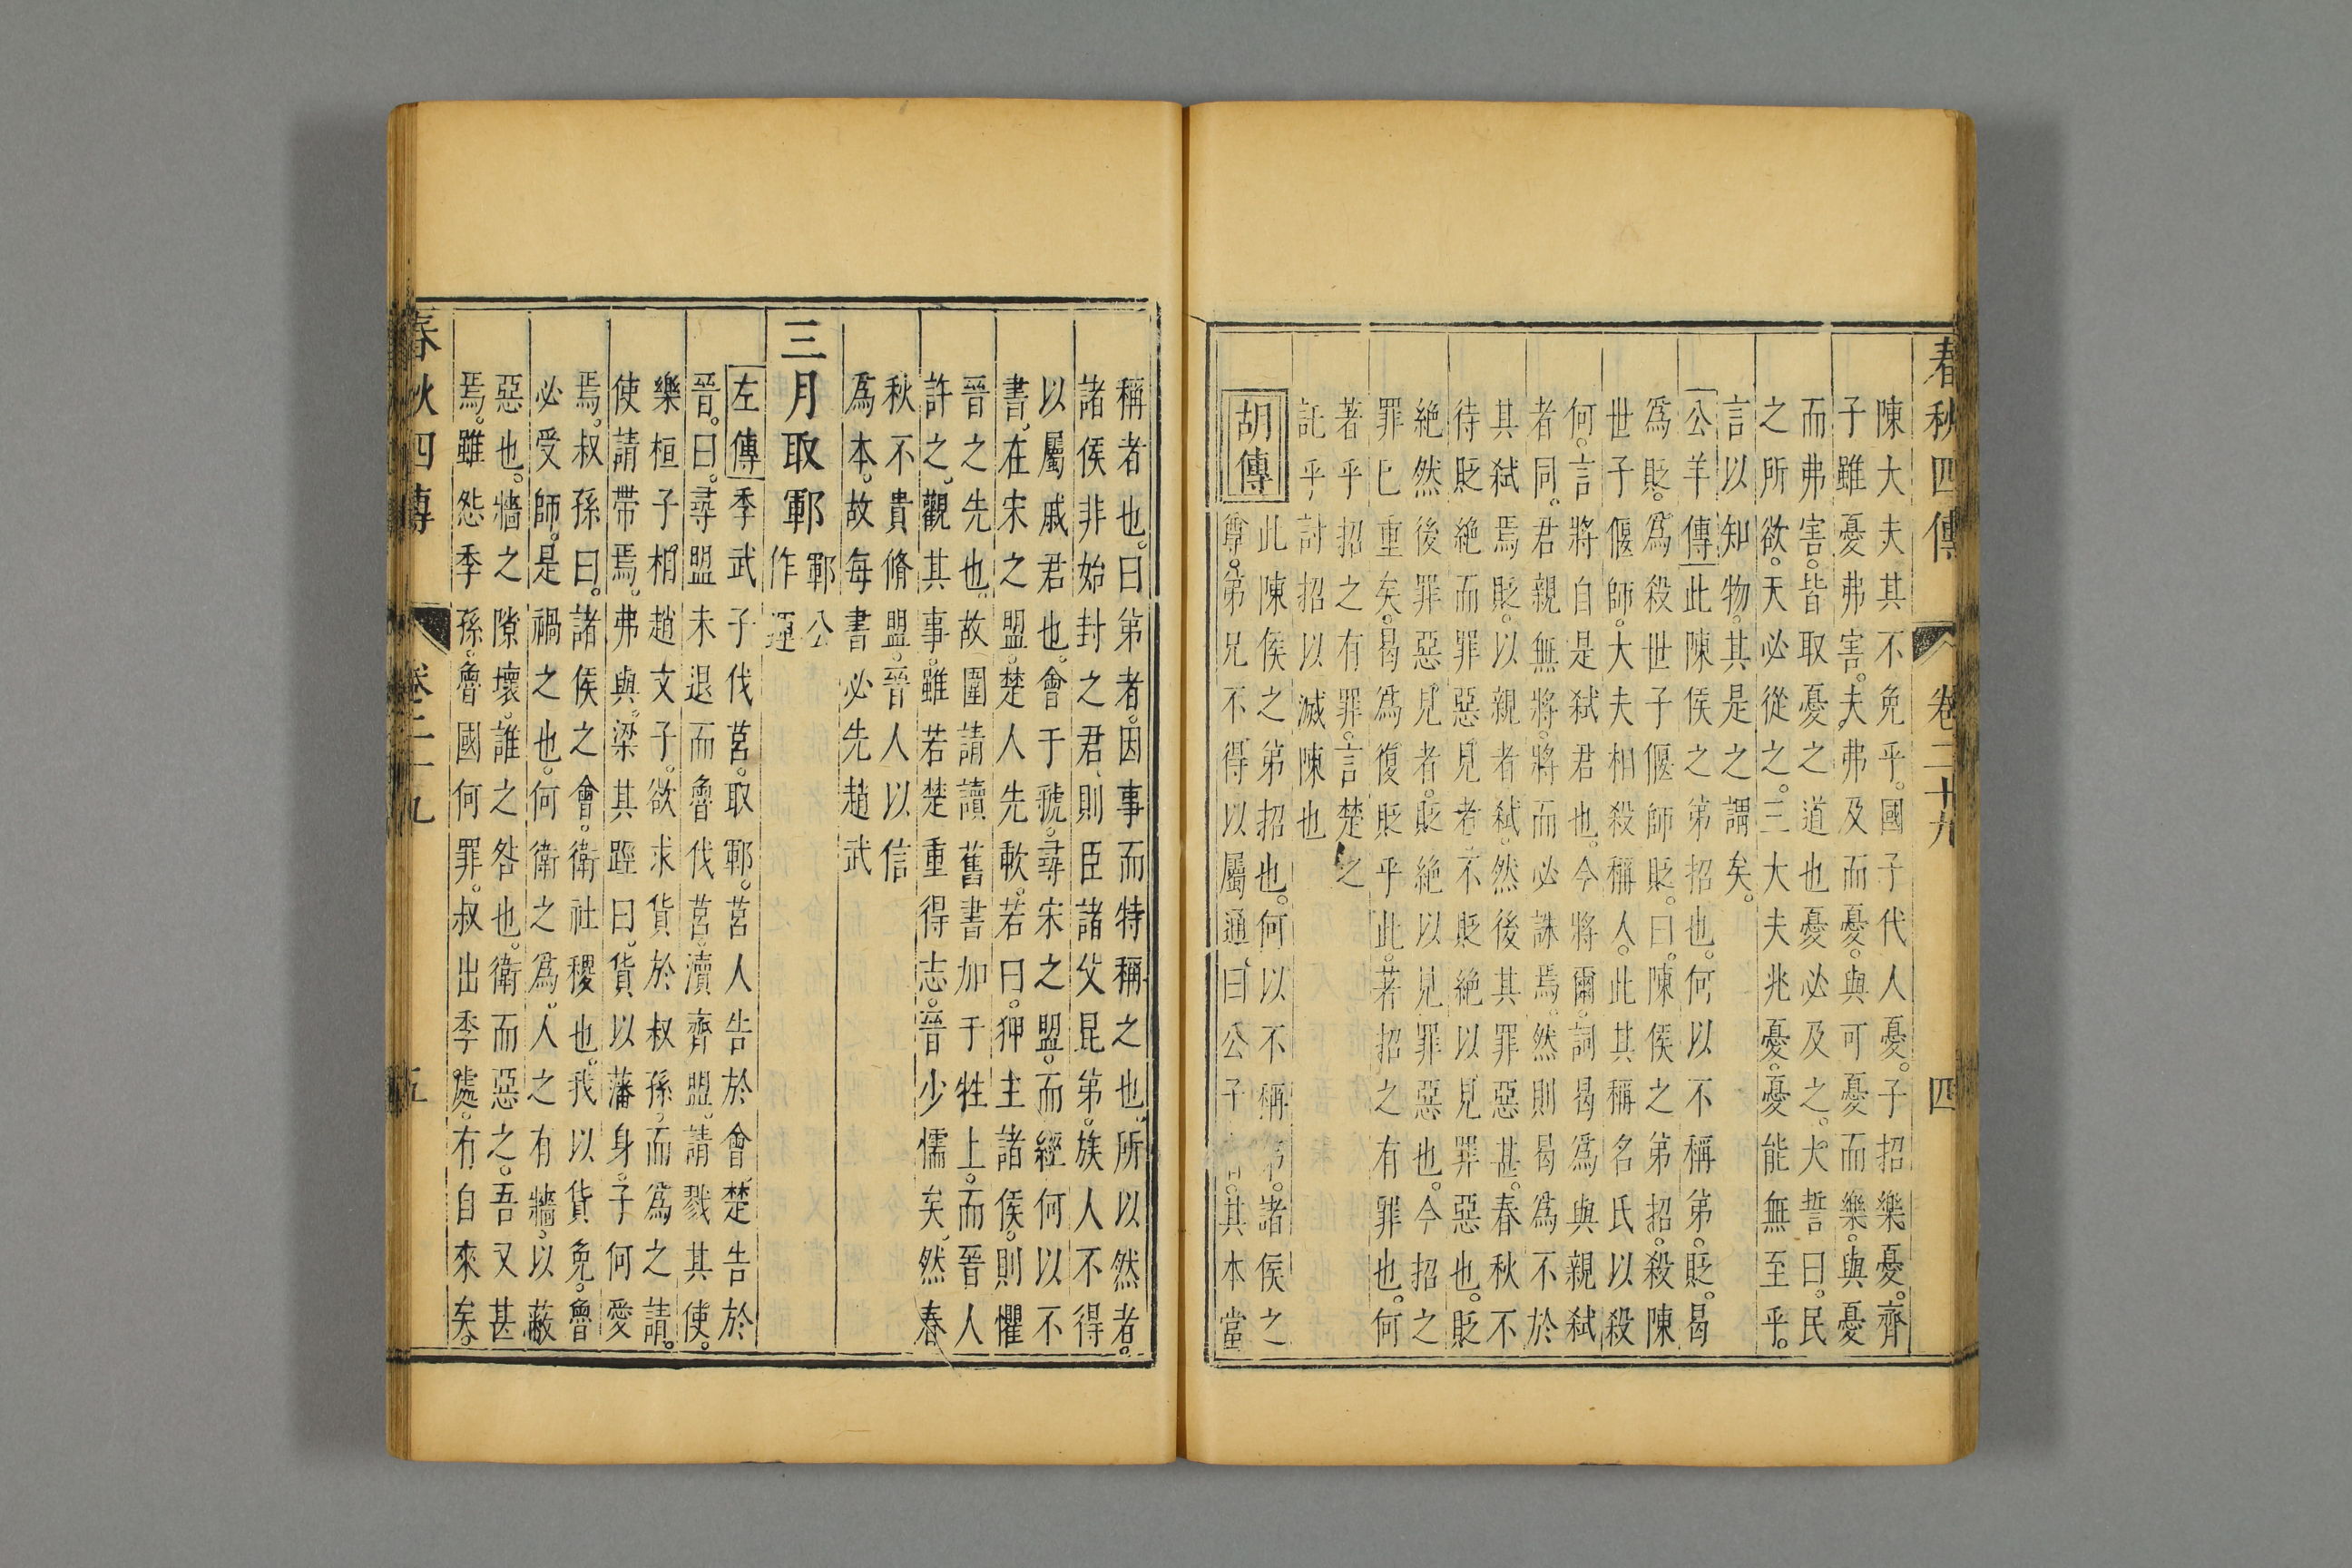 春秋四傳 卷二十九 四
陳大夫其不免乎。國子代人憂。子招樂憂。齊
子雖憂弗害。夫弗及而憂。與可憂而樂。與憂
而弗害。皆取憂之道也憂必及之。大誓曰。民
之所欲。天必從之。三大夫兆憂。憂能無至乎。
言以知物。其是之謂矣。
公羊傳此陳侯之弟招也。何以不稱弟。貶。曷
爲貶。爲殺世子偃師貶。曰。陳侯之弟招。殺陳
世子偃師。大夫相殺稱人。此其稱名氏以殺
何。言將自是弑君也。今將爾。詞曷爲與親弑
者同。君親無將。將而必誅焉。然則曷爲不於
其弑焉貶。以親者弑。然後其罪惡甚。春秋不
待貶絕而罪惡見者。不貶絕以見罪惡也。貶
絕然後罪惡見者。貶絕以見罪惡也。今招之
罪已重矣。曷爲復貶乎此。著招之有罪也。何
著乎招之有罪。言楚之
託乎討招以滅陳也
胡傳此陳侯之弟招也。何以不稱弟。諸侯之
尊。弟兄不得以屬通。曰公子其本當
稱者也。曰弟者。因事而特稱之也。所以然者。
諸侯非始封之君、則臣諸父昆弟。族人不得
以屬戚君也。會于虢。尋宋之盟。而經何以不
書。在宋之盟。楚人先歃。若曰。狎主諸侯。則懼
晉之先也。故圍請讀舊書加于牲上。而晉人
許之。觀其事。雖若楚重得志。晉少懦矣。然春
秋不貴脩盟。晉人以信
爲本。故每書必先趙武
三月取鄆鄆公
作運
左傳季武子伐莒。取鄆。莒人告於會。楚告於
晉。曰。尋盟未退而魯伐莒。瀆齊盟。請戮其使。
樂桓子相趙文子。欲求貨於叔孫。而爲之請。
使請帶焉。弗與。梁其踁曰。貨以藩身。子何愛
焉。叔孫曰。諸侯之會。衛社稷也。我以貨免。魯
必受師。是禍之也。何衛之爲。人之有牆。以蔽
惡也。牆之隙壞。誰之咎也。衛而惡之。吾又甚
焉。雖怨季孫。魯國何罪。叔出季處。有自來矣。
春秋四傳 卷二十九 五